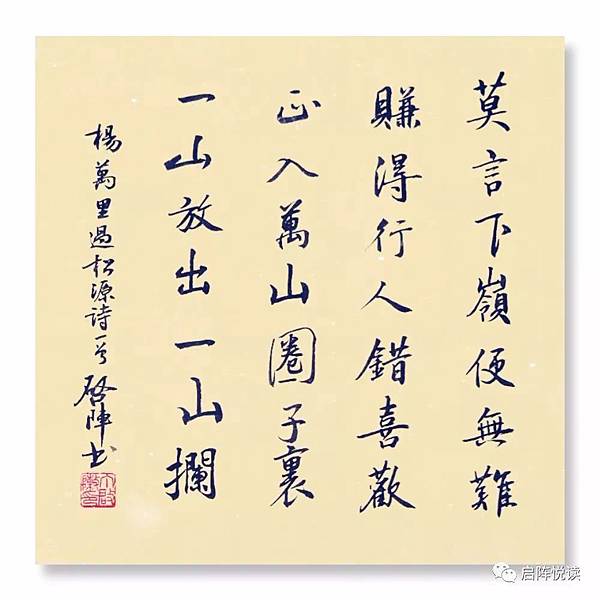 莫言下嶺便無難
賺得行人錯喜歡
正入萬山圈子裏
一山放出一山攔
楊萬里過松源詩一首 啓陣書
启阵悦读